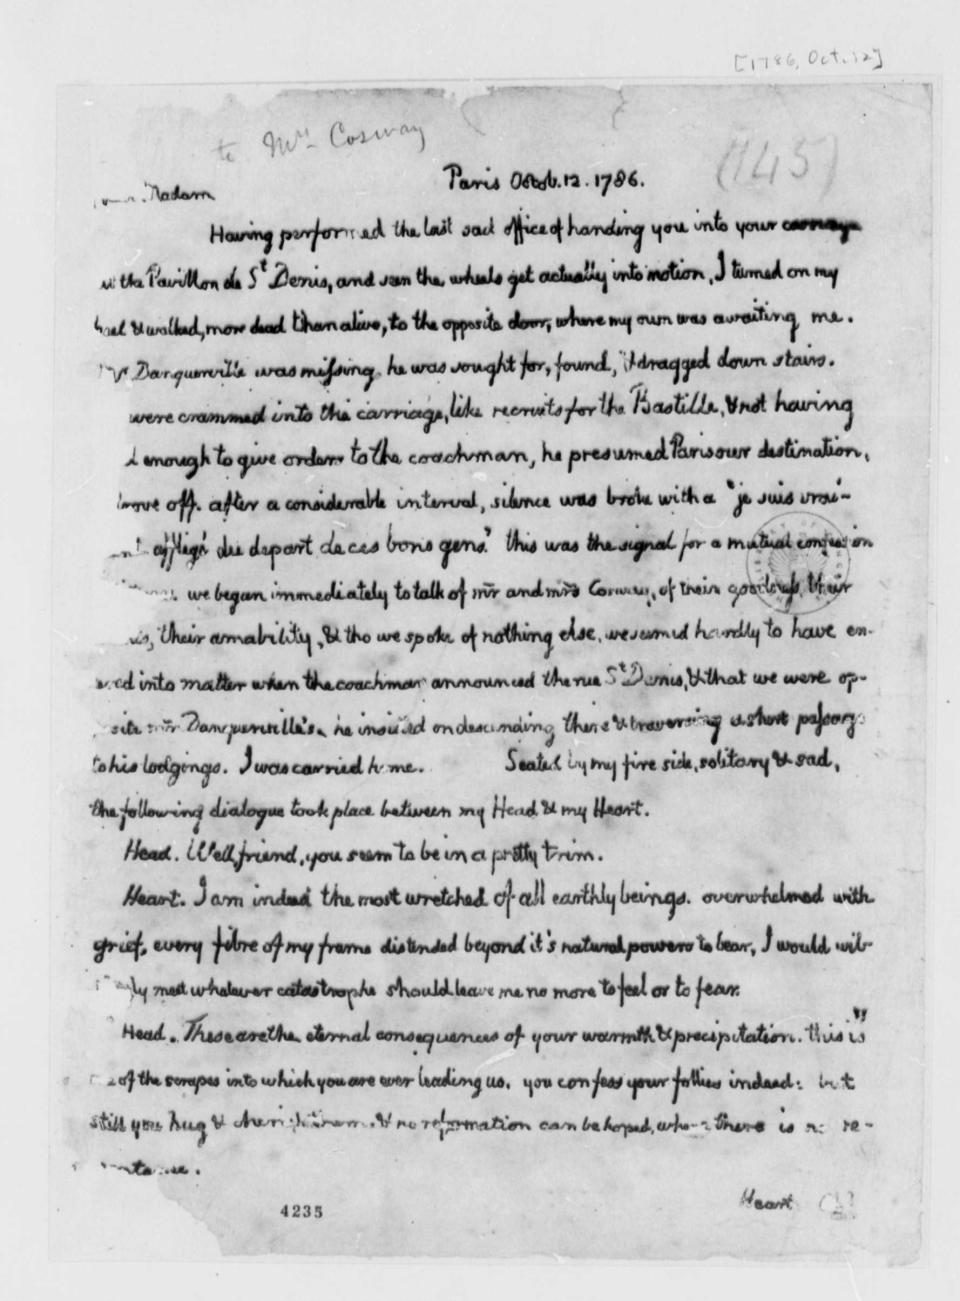 [1786, Oct. 12]
to Mrs Cosway
(145)
Paris Octob. 12. 1786.
Madam
Having performed the last sad office of handing you into your carriage
at the Pavillon de St Denis, and seen the wheels get actually into motion, I turned on my
heel & walked, more dead than alive, to the opposite door, where my own was awaiting me.
Mr Danquerville was missing. he was sought for, found, & dragged down stairs.
were crammed into the carriage, like recruits for the Bastille, & not having
enough to give orders to the coachman, he presumed Paris our destination,
drove off. after a considerable interval, silence was broke with a "je suis vrai-
affligé du depart de ces bons gens." this was the signal for a mutual confession
we began immediately to talk of mr and mrs Cosway, of their goodness, their
their amability, & tho we spoke of nothing else, we seemed hardly to have en-
into matter when the coachman announced the rue St Denis, & that we were op-
posite mr Danquerville's. he insisted on descending there & traversing a short passage
to his lodgings. I was carried home. Seated by my fire side, solitary & sad,
the following dialogue took place between my Head & my Heart.
Head. Well, friend, you seem to be in a pretty trim.
Heart. I am indeed the most wretched of all earthly beings. overwhelmed with
grief, every fibre of my frame distended beyond it's natural powers to bear, I would wil-
lingly meet whatever catastrophe should leave me no more to feel or to fear.
Head. These are the eternal consequences of your warmth & precipitation. this is
of the scrapes into which you are ever leading us. you confess your follies indeed: but
still you hug & cherish them, & no reformation can be hoped, where there is no re-
pentance.
4235
Heart